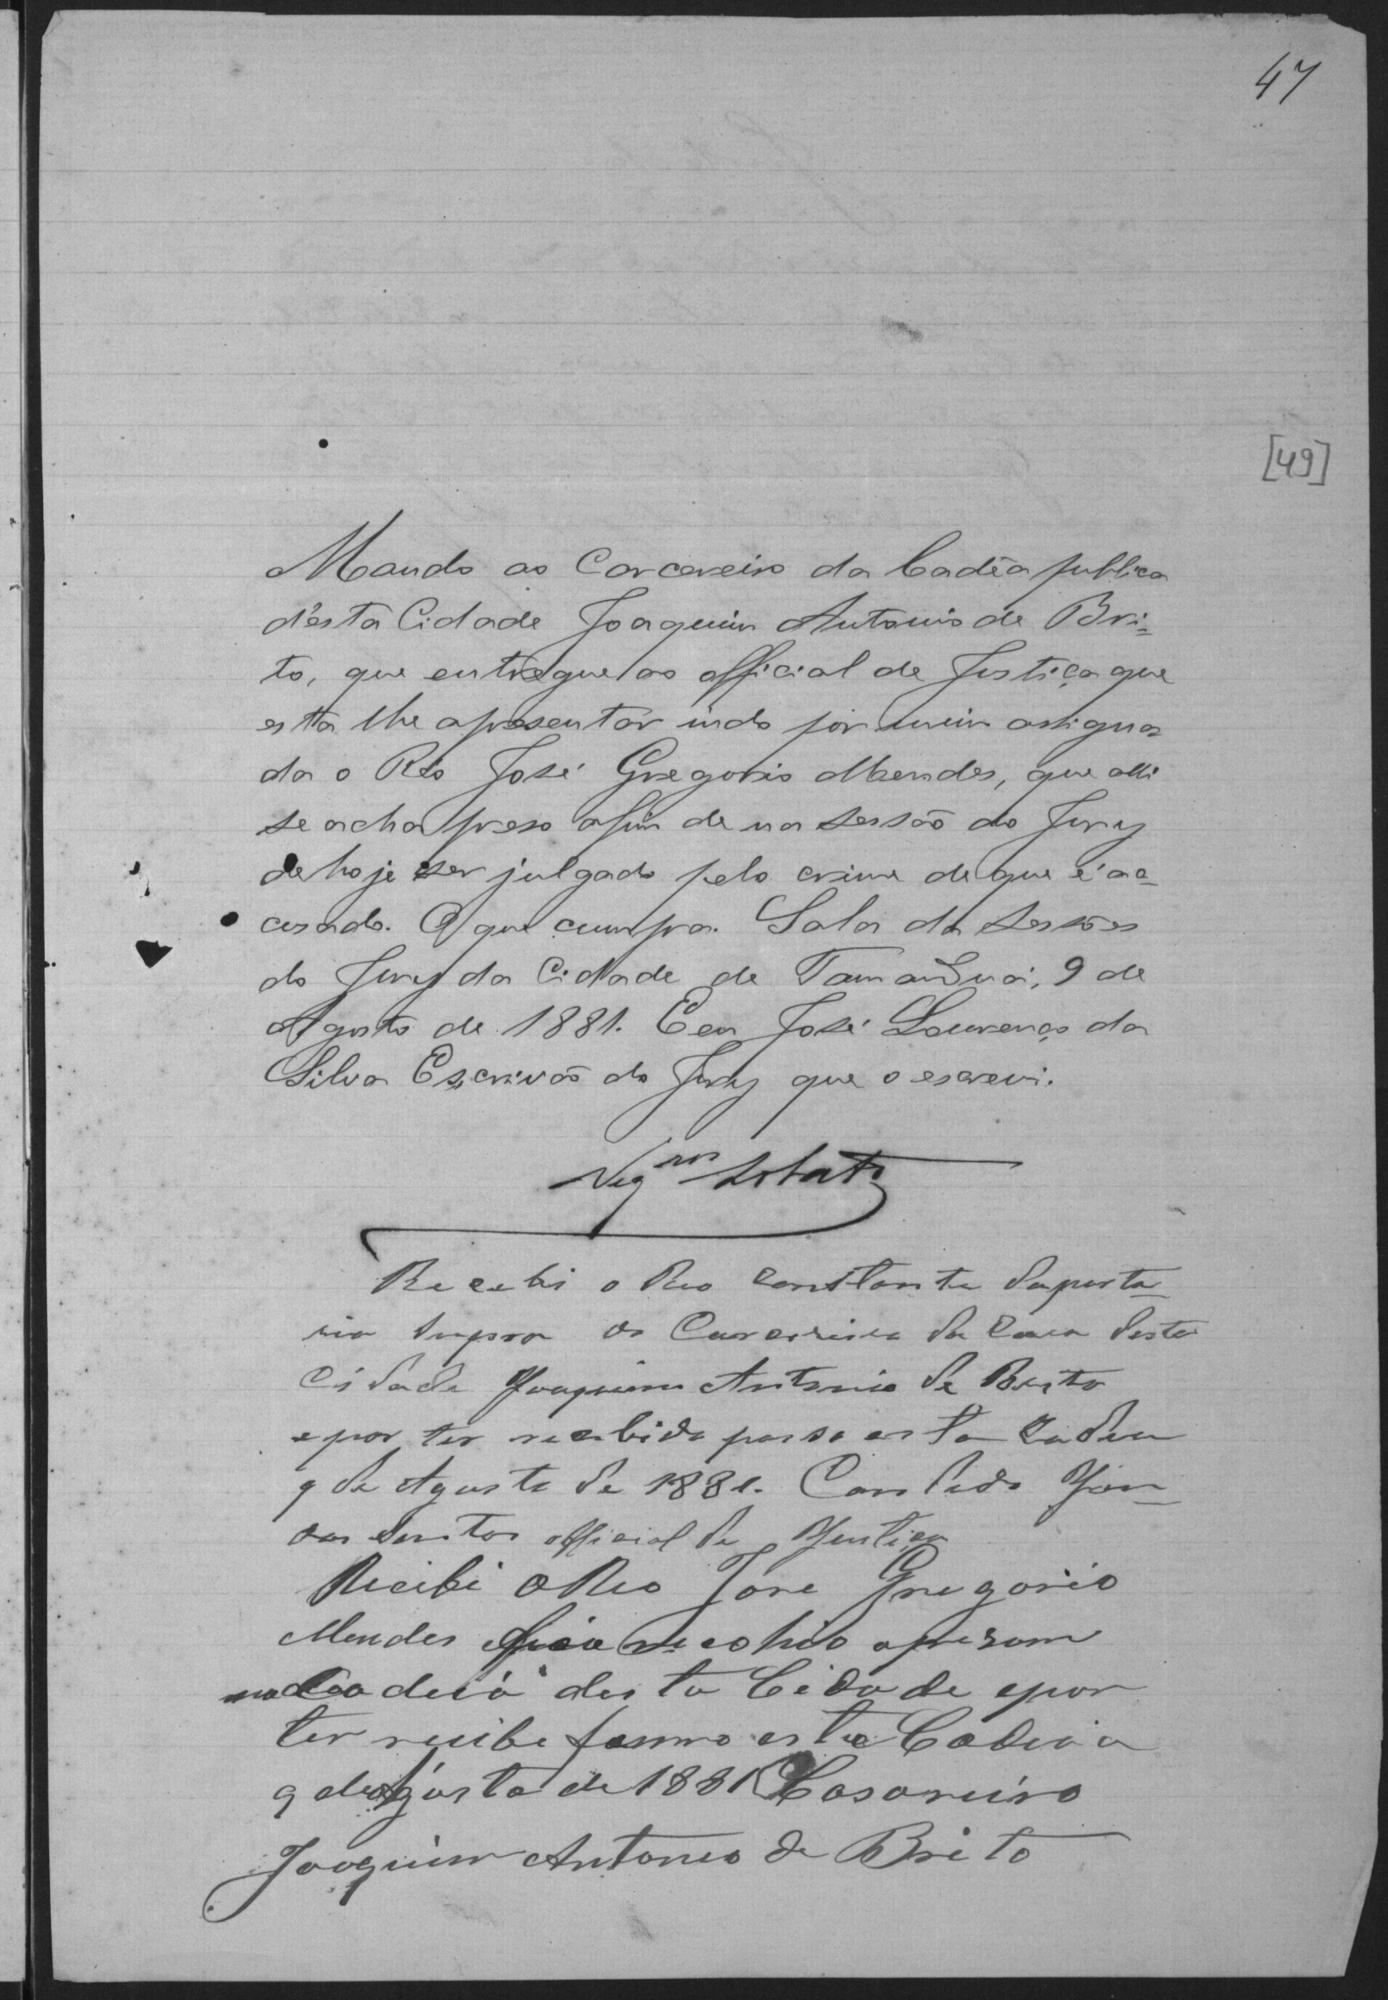 47
[49]
Mando ao Carcereiro da Cadêa publica
d'ésta Cidade Joaquim Antonio de Bri=
to, que entregue ao official de Justiça que
esta lhe apresentar indo por mim assigna
da o Réo José Gregorio Mendes, que alli
se acha preso afim de na sessão do Jury
de hoje ser julgado pelo crime de que é ac=
cusado. O que cumpra. Sala da Sessões
do Jury da Cidade de Tamanduá, 9 de
Agosto de 1881. E eu José Lourenço da
Silva Escrivão do Jury que o escrevi.
Lobato
Recebi o Reo constante da porta
ria supra do Carcereiro da desta
Cidade Joaquim Antonio de Brito
e por ter recebido passo esta Cadeia
9 de Agosto de 1881. Candido
dos Santos official de Justiça
Recibi o Reo Jose Gregorio
Mendes e fica recolhido a prezam
na Cadeia desta Cidade e por
ter recibi este Cadeia
9 de Agosto de 1881 O Casareiro
Joaquim Antonio de Brito